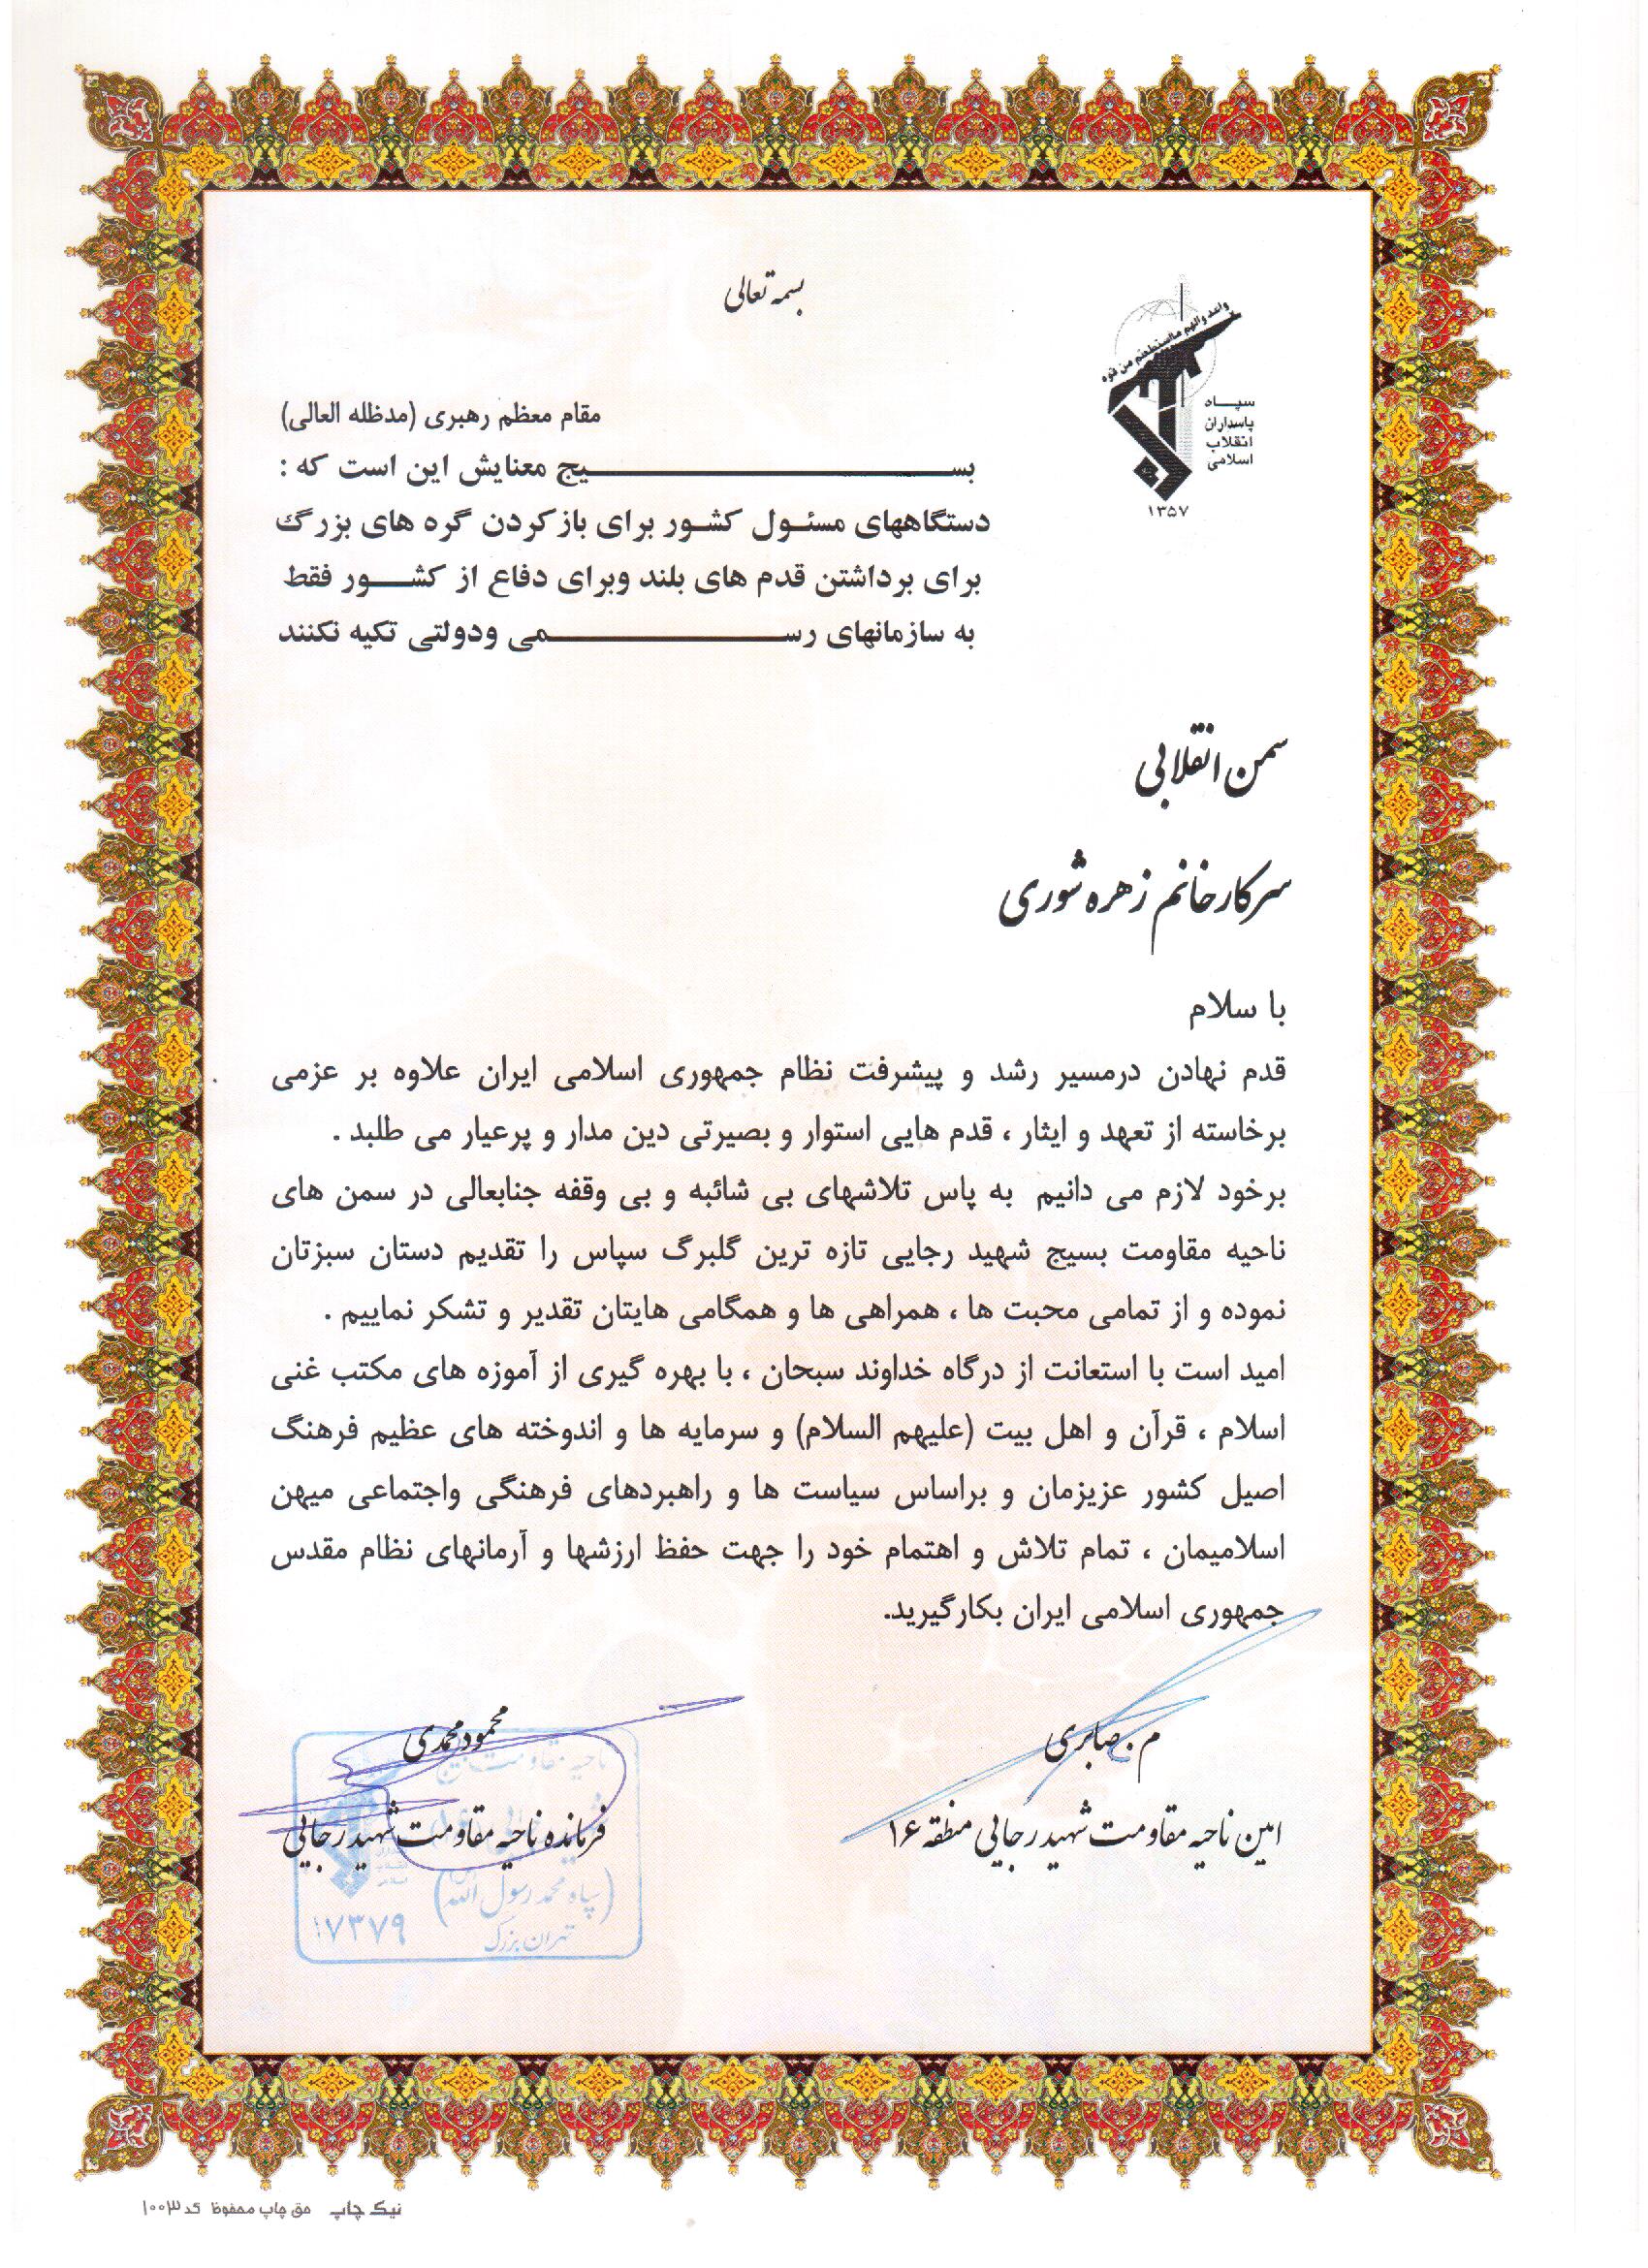 بسمه تعالی
واعدوالهم مااستطعتم من قوه
سپاه
پاسداران
انقلاب
اسلامی
۱۳۵۷
مقام معظم رهبری (مدظله العالی)
بسیج معنایش این است که :
دستگاههای مسئول کشور برای باز کردن گره های بزرگ
برای برداشتن قدم های بلند وبرای دفاع از کشور فقط
به سازمانهای رسمی ودولتی تکیه نکنند
سمن انقلابی
سرکارخانم زهره شوری
با سلام
قدم نهادن درمسیر رشد و پیشرفت نظام جمهوری اسلامی ایران علاوه بر عزمی
برخاسته از تعهد و ایثار ، قدم هایی استوار و بصیرتی دین مدار و پرعیار می طلبد .
برخود لازم می دانیم به پاس تلاشهای بی شائبه و بی وقفه جنابعالی در سمن های
ناحیه مقاومت بسیج شهید رجایی تازه ترین گلبرگ سپاس را تقدیم دستان سبزتان
نموده و از تمامی محبت ها ، همراهی ها و همگامی هایتان تقدیر و تشکر نماییم .
امید است با استعانت از درگاه خداوند سبحان ، با بهره گیری از آموزه های مکتب غنی
اسلام ، قرآن و اهل بیت (علیهم السلام) و سرمایه ها و اندوخته های عظیم فرهنگ
اصیل کشور عزیزمان و براساس سیاست ها و راهبردهای فرهنگی واجتماعی میهن
اسلامیمان ، تمام تلاش و اهتمام خود را جهت حفظ ارزشها و آرمانهای نظام مقدس
جمهوری اسلامی ایران بکارگیرید.
م . صابری
امین ناحیه مقاومت شهید رجایی منطقه ۱۶
محمود محمدی
فرمانده ناحیه مقاومت شهید رجایی
ناحیه مقاومت بسیج
(سپاه محمد رسول الله)
تهران بزرگ
۱۷۳۷۹
نیک چاپ حق چاپ محفوظ کد ۱۰۰۳